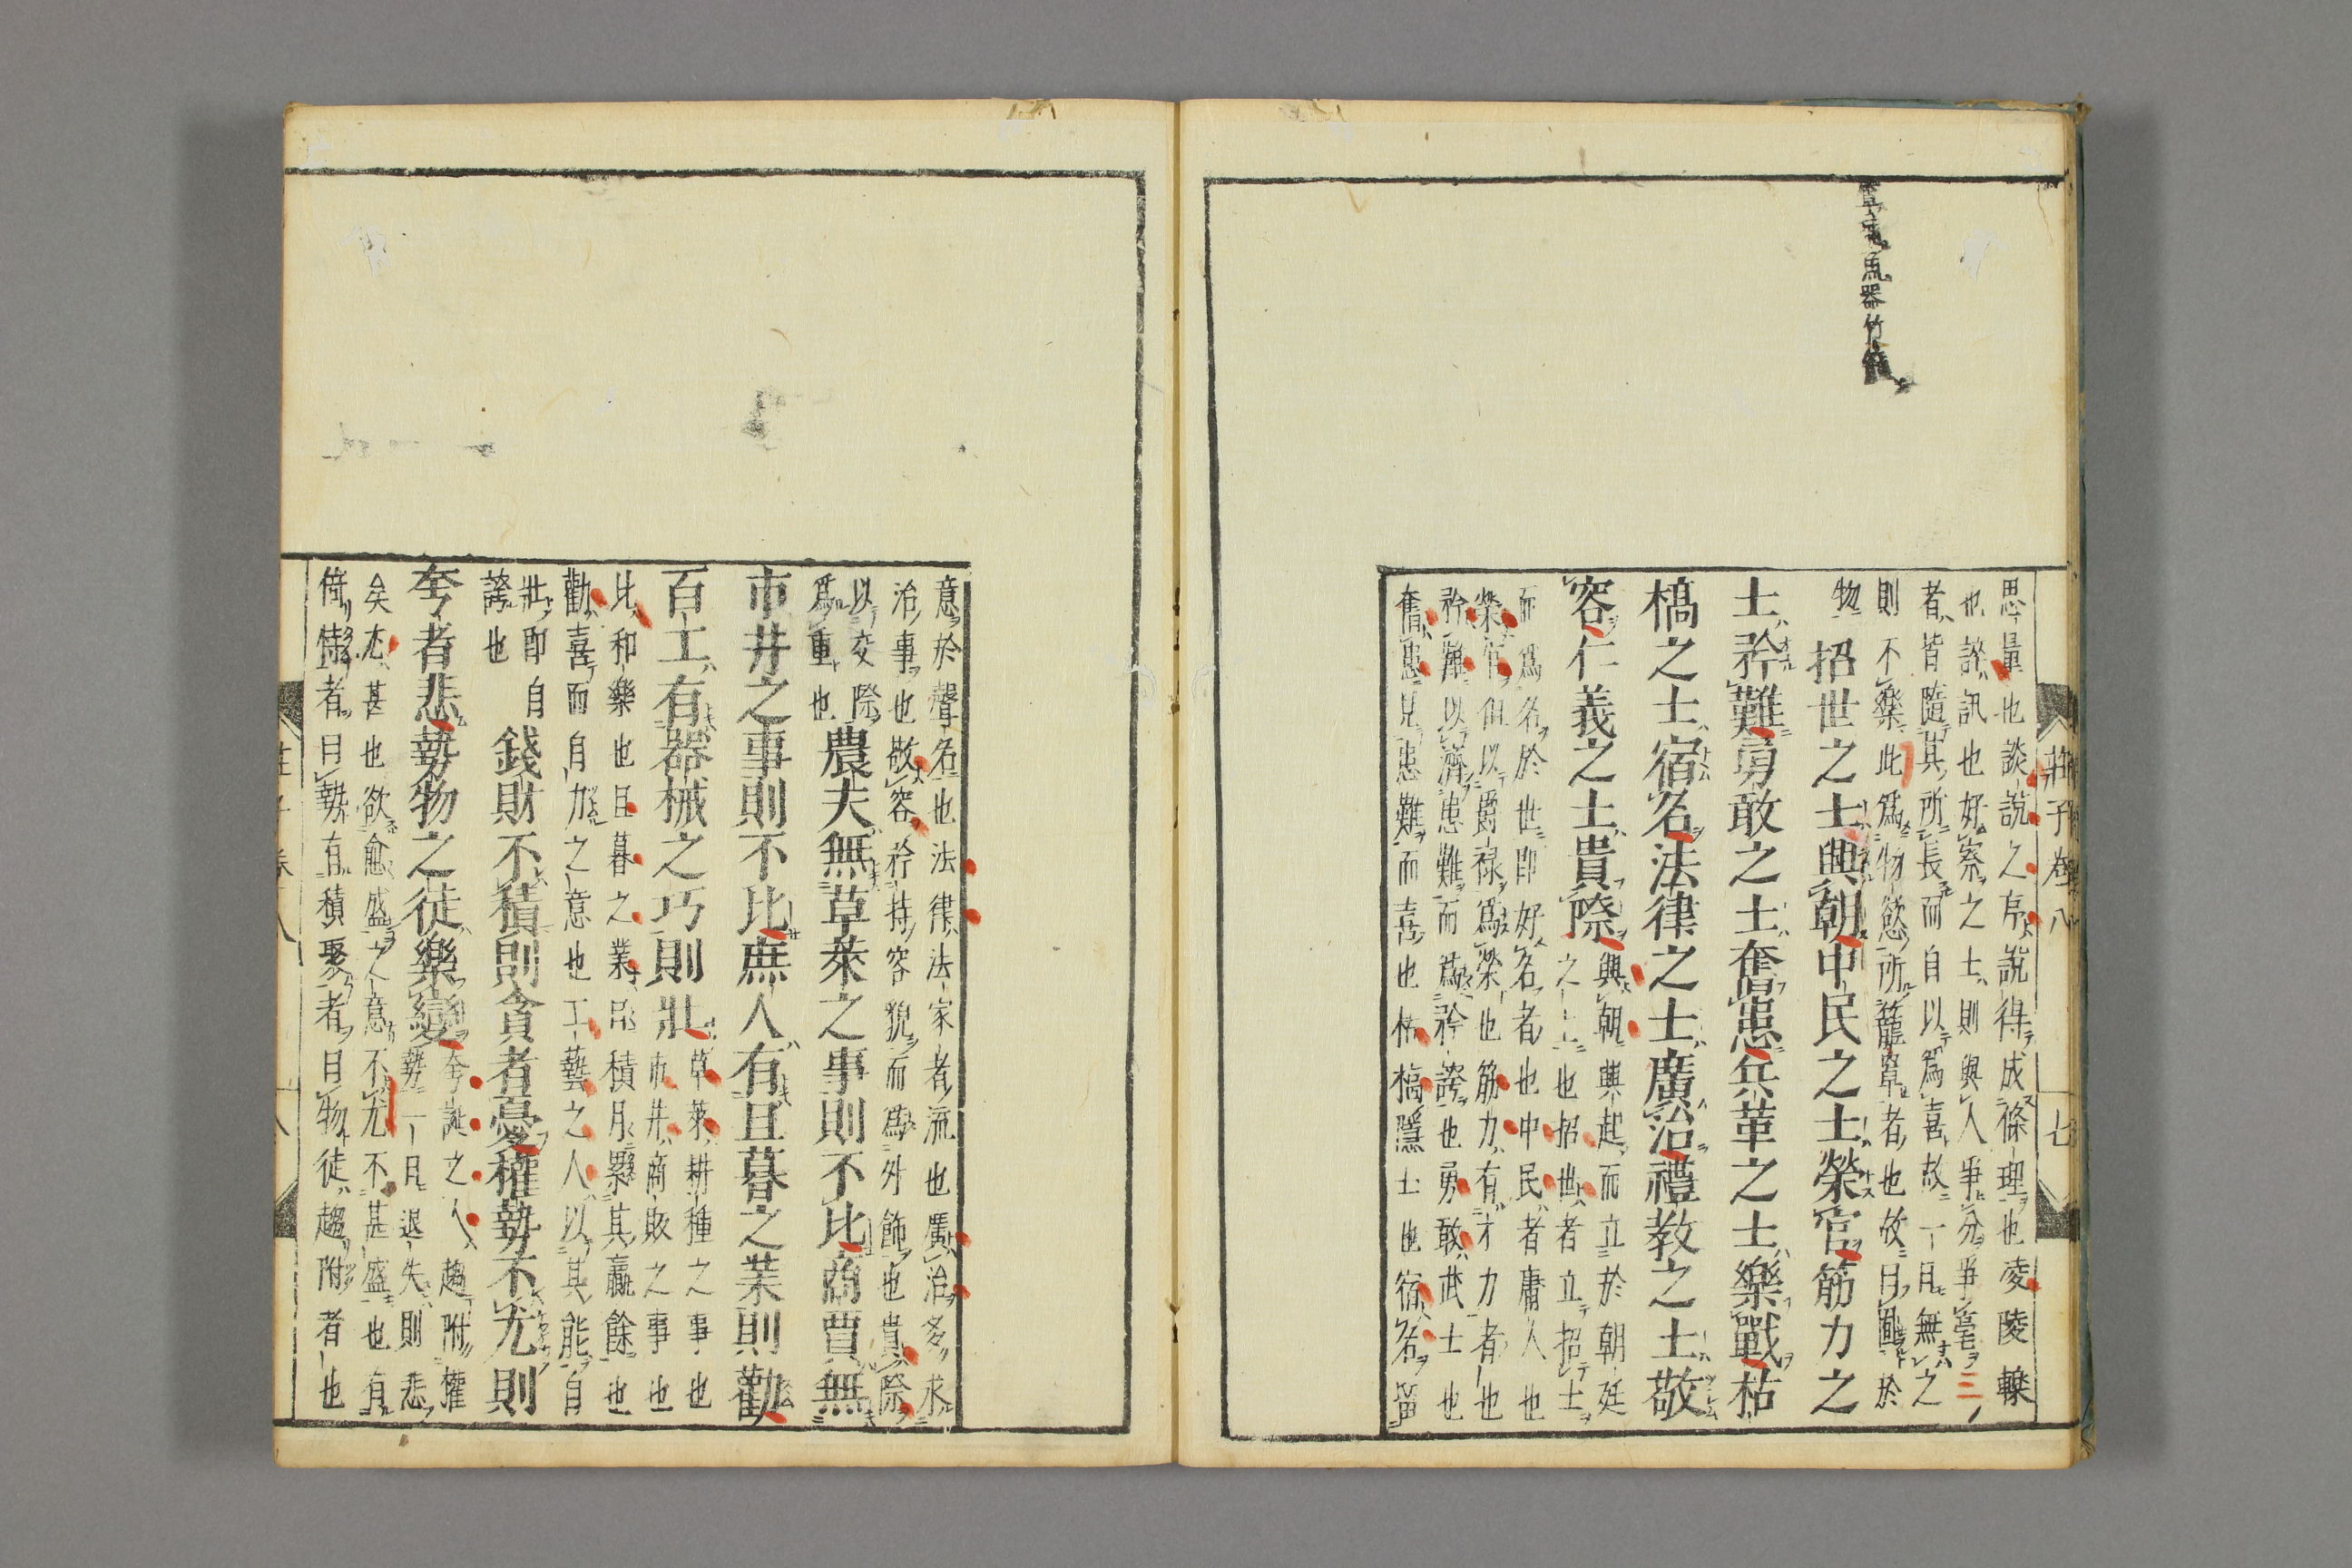 莊子卷八
七
思量也談說之序說得成條理也凌陵轢
也誶訊也好察之士則與人爭分爭毫
者皆隨其所長而自以爲喜故一旦無之
則不樂此爲物慾所籠罩者也故曰囿於
物
招世之士興朝中民之士榮官筋力之
士矜難勇敢之士奮患兵革之士樂戰枯
槁之士宿名法律之士廣治禮教之士敬
容仁義之士貴際
興朝興起而立於朝廷
之上也招世者立招士
而爲名於世卽好名者也中民者庸人也
榮官但以爵祿爲榮也筋力有才力者也
矜難以濟患難而爲矜誇也勇敢武士也
奮患見患難而喜也枯槁隱士也宿名留
意於聲名也法律法家者流也廣治多求
治事也敬容矜持容貌而爲外飾也貴際
以交際
爲重也
農夫無草萊之事則不比商賈無
市井之事則不比庶人有旦暮之業則勸
百工有器械之巧則壯
草萊耕種之事也
市井商販之事也
比和樂也旦暮之業積月累其贏餘也
勸喜而自力之意也工藝之人以其能自
壯卽自
誇也
錢財不積則貪者憂權勢不尤則
夸者悲勢物之徒樂變
夸誕之人趨附權
勢一旦退失則悲
矣尤甚也欲愈盛之意不尤不甚盛也有
倚恃者曰勢有積聚者曰物徒趨附者也